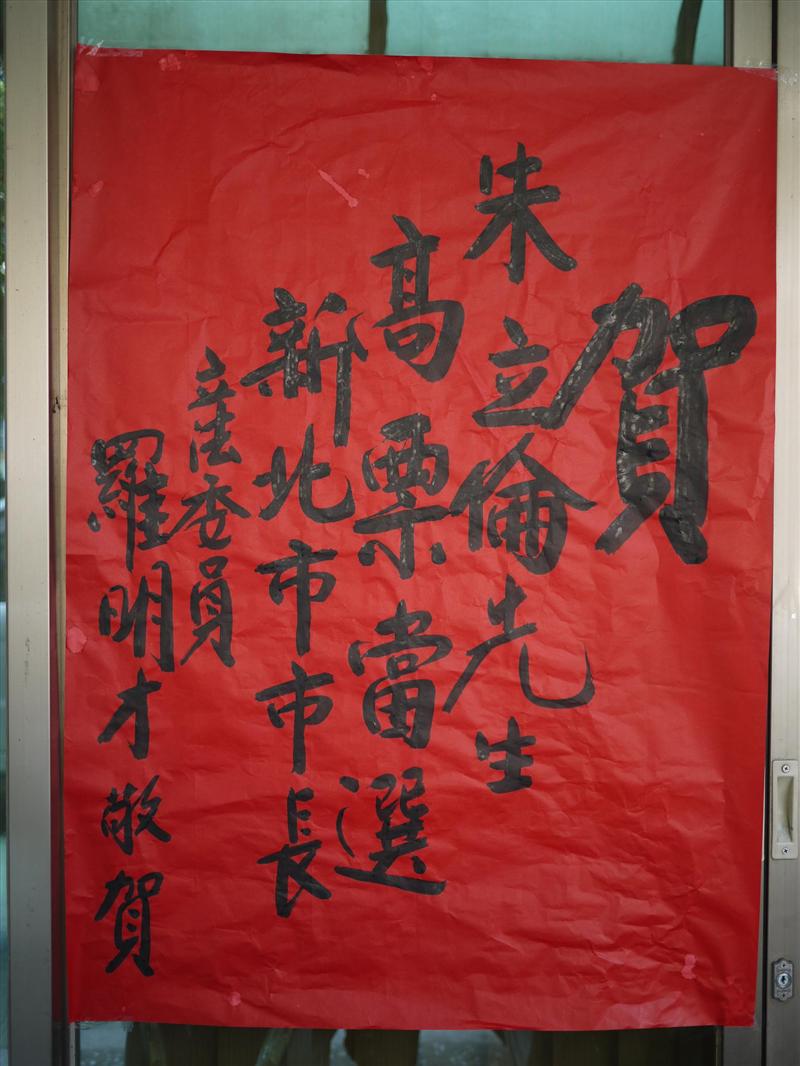 賀
朱立倫先生
高票當選
新北市市長
立法委員
羅明才敬賀